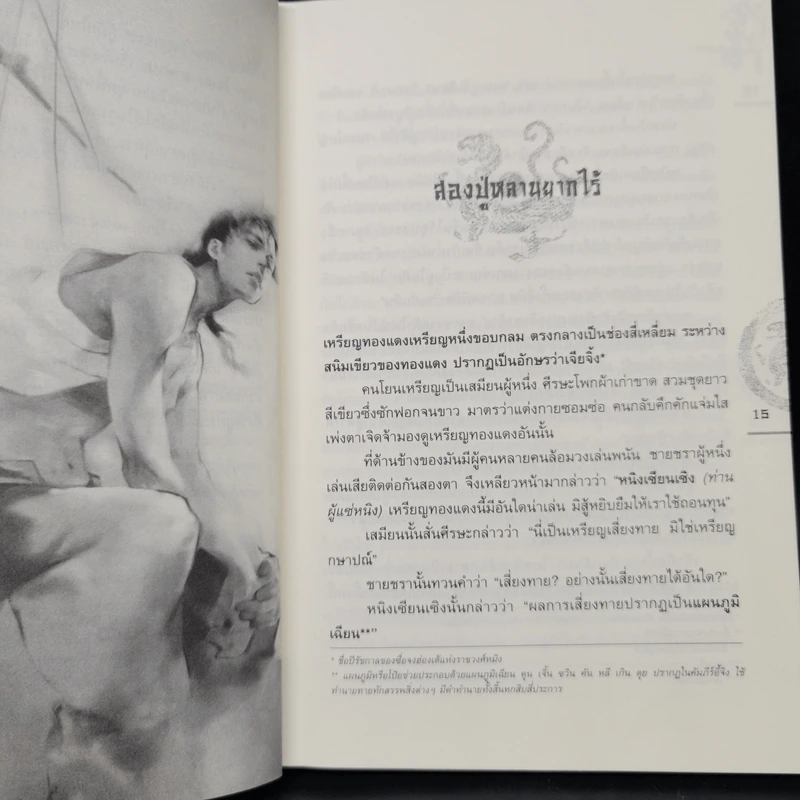 สองปู่หลานยากไร้
เหรียญทองแดงเหรียญหนึ่งขอบกลม ตรงกลางเป็นช่องสี่เหลี่ยม ระหว่าง
สนิมเขียวของทองแดง ปรากฏเป็นอักษรว่าเจียจิ้ง*
คนโยนเหรียญเป็นเสมียนผู้หนึ่ง ศีรษะโพกผ้าเก่าขาด สวมชุดยาว
สีเขียวซึ่งซักฟอกจนขาว มาตรว่าแต่งกายซอมซ่อ คนกลับคึกคักแจ่มใส
เพ่งตาเจิดจ้ามองดูเหรียญทองแดงอันนั้น
15
ที่ด้านข้างของมันมีผู้คนหลายคนล้อมวงเล่นพนัน ชายชราผู้หนึ่ง
เล่นเสียติดต่อกันสองตา จึงเหลียวหน้ามากล่าวว่า “หนิงเซียนเซิง (ท่าน
ผู้แซ่หนิง) เหรียญทองแดงนี้มีอันใดน่าเล่น มิสู้หยิบยืมให้เราใช้ถอนทุน”
เสมียนนั้นสั่นศีรษะกล่าวว่า “นี่เป็นเหรียญเสี่ยงทาย มิใช่เหรียญ
กษาปณ์”
ชายชรานั้นทวนคำว่า “เสี่ยงทาย? อย่างนั้นเสี่ยงทายได้อันใด?”
หนิงเซียนเซิงนั้นกล่าวว่า “ผลการเสี่ยงทายปรากฏเป็นแผนภูมิ
เฉียน**”
* ชื่อปีรัชกาลของซื่อจงฮ่องเต้แห่งราชวงศ์หมิง
** แผนภูมิหรือโป๊ยข่วยประกอบด้วยแผนภูมิเฉียน คุน เจิ้น ซวิ่น คั่น หลี เกิ้น ตุ้ย ปรากฏในคัมภีร์อี้จิง ใช้
ทำนายทายทักสรรพสิ่งต่างๆ มีคำทำนายทั้งสิ้นหกสิบสี่ประการ